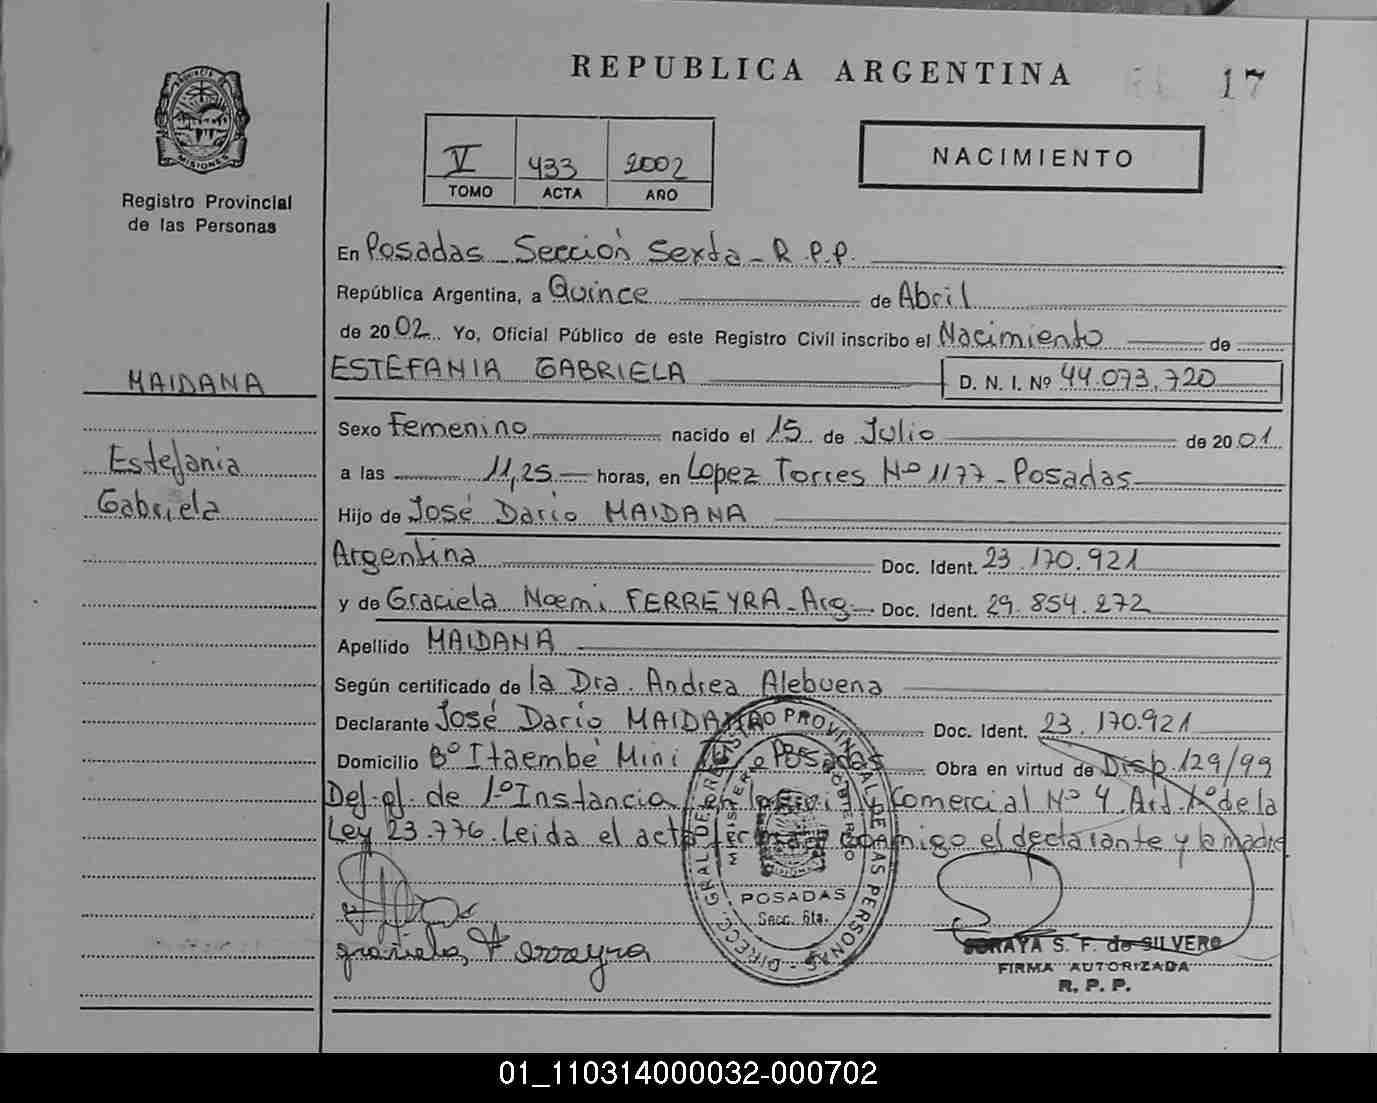 REPUBLICA ARGENTINA
17
MISIONES
Registro Provincial
de las Personas
V 433 2002
TOMO ACTA AÑO
NACIMIENTO
En Posadas - Sección Sexta - R.P.P.
República Argentina, a Quince de Abril
de 2002. Yo, Oficial Público de este Registro Civil inscribo el Nacimiento de
MAIDANA
ESTEFANIA GABRIELA D. N. I. Nº 44.073.720
Sexo Femenino nacido el 15 de Julio de 2001
Estefania
a las 11,25 horas, en Lopez Torres Nº 1177 - Posadas
Gabriela
Hijo de José Dario MAIDANA
Argentina Doc. Ident. 23.170.921
y de Graciela Noemi FERREYRA - Arg. Doc. Ident. 29.854.272
Apellido MAIDANA
Según certificado de la Dra. Andrea Alebuena
Declarante José Dario MAIDANA Doc. Ident. 23.170.921
Domicilio Bº Itaembé Mini Posadas Obra en virtud de Disp. 129/99
Def. of. de 1º Instancia en lo Civil y Comercial Nº 4 Ard. 1º de la
Ley 23.776. Leida el acta firman conmigo el declarante y la madre
DIRECC. GRAL. DE REGISTRO PROVINCIAL DE LAS PERSONAS
POSADAS
Secc. 6ta.
graciela Ferreyra
SORAYA S. F. de SILVERO
FIRMA AUTORIZADA
R. P. P.
01_110314000032-000702